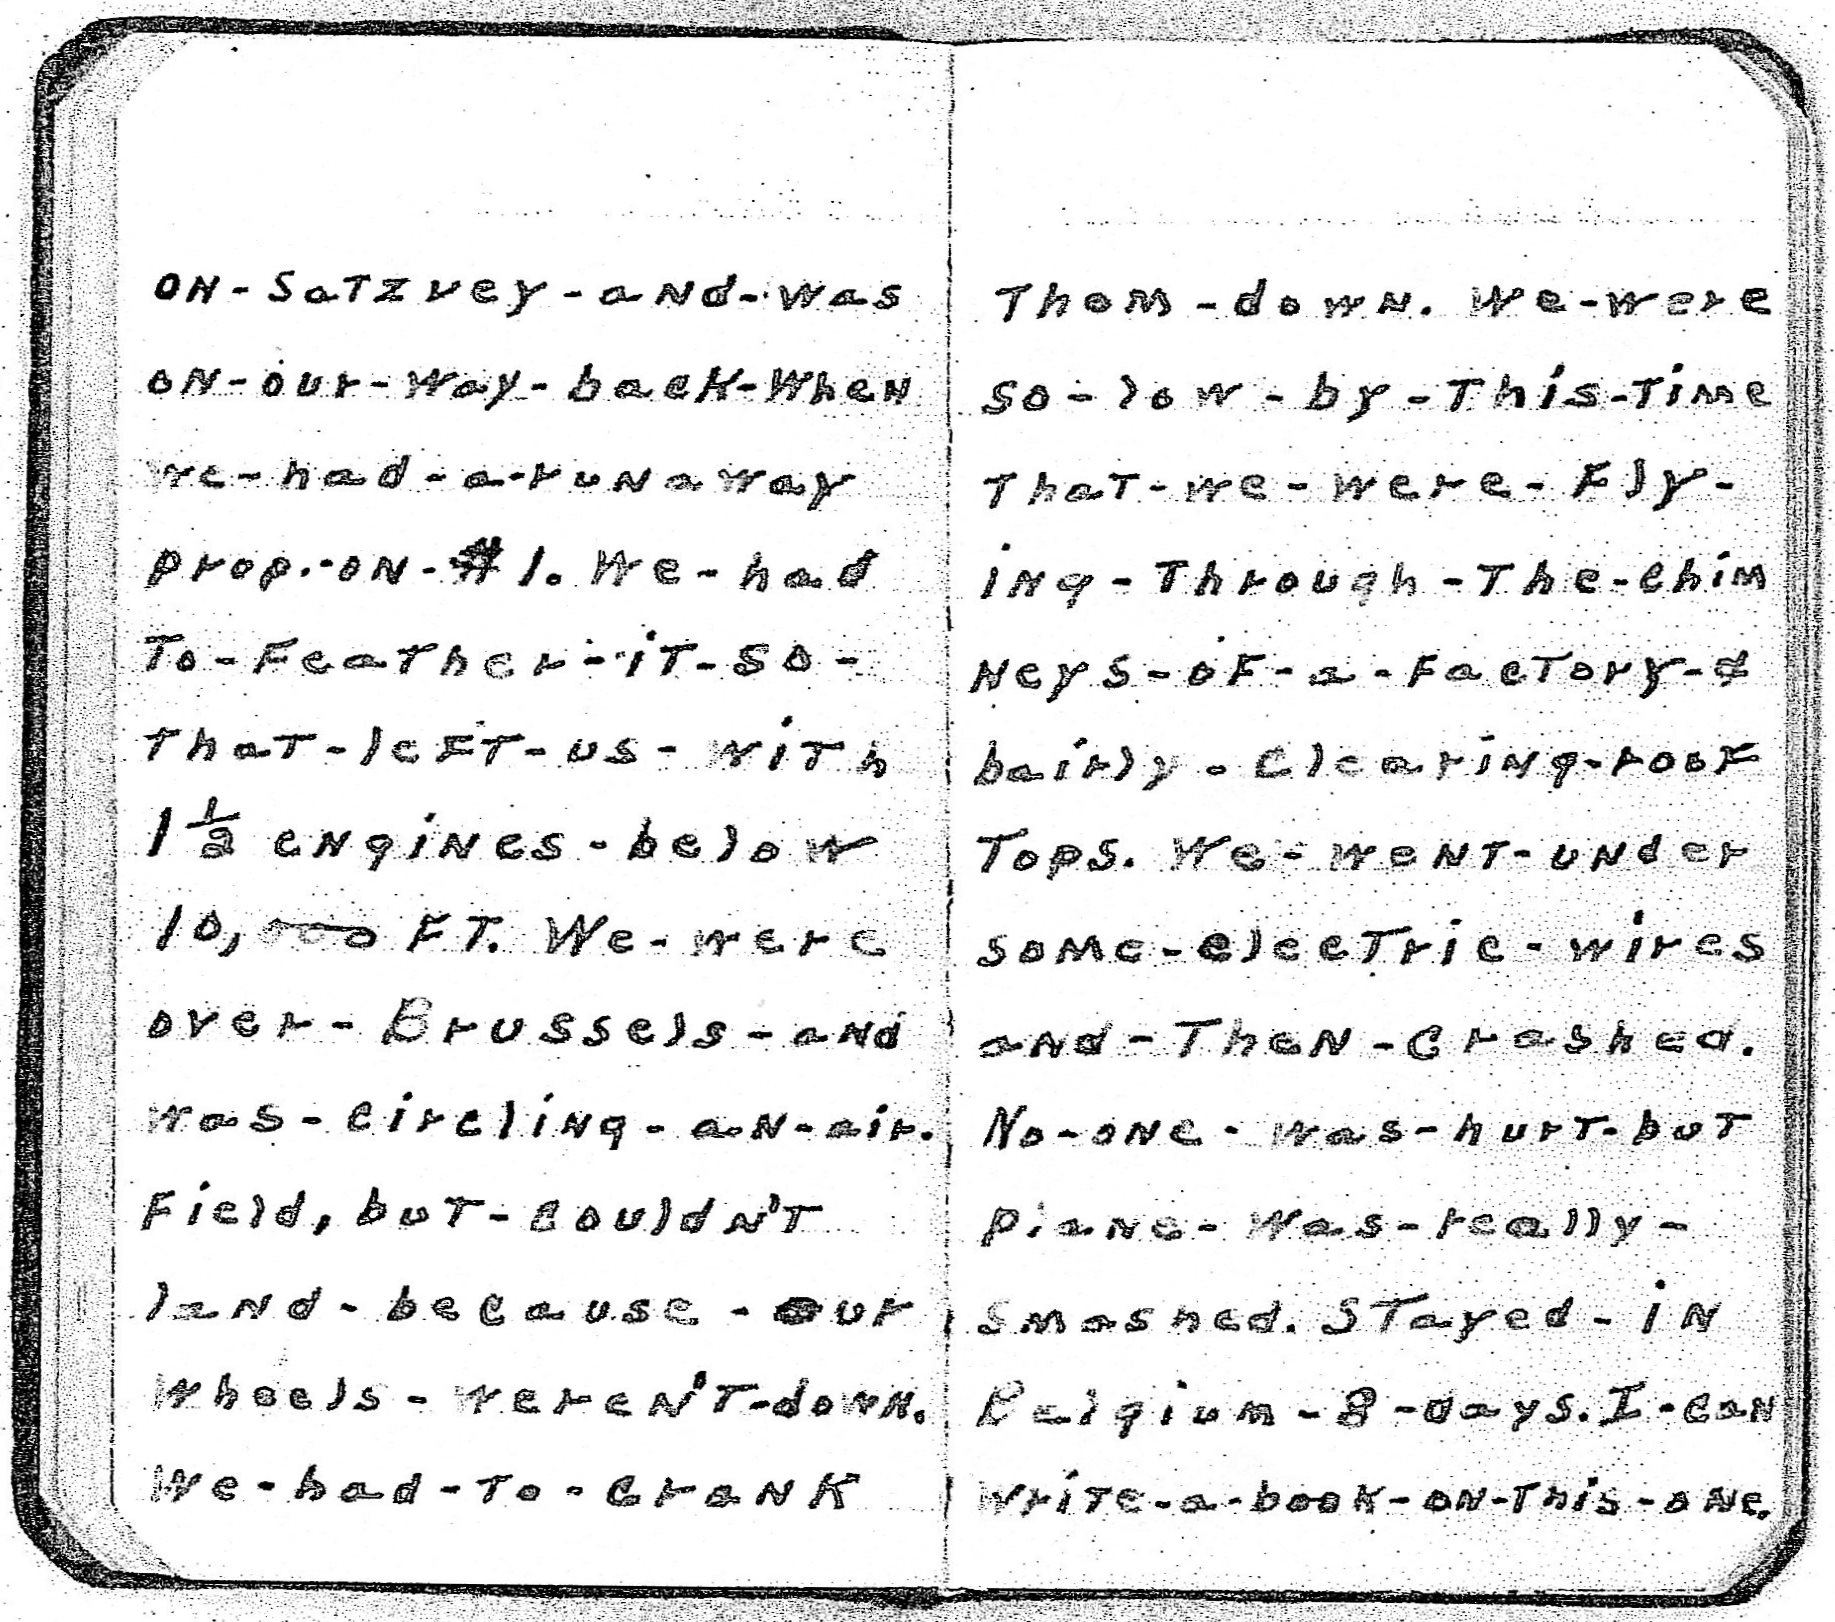 on-Satzvey-and-was
on-our-way-back-when
we-had-a-runaway
prop.-on-#1. We-had
To-Feather-it-so-
that-left-us-with
1 1/2 engines-below
10,000 FT. We-were
over-Brussels-and
was-circling-an-air-
Field, but-couldn't
land-because-our
wheels-weren't-down.
We-had-to-crank
Thom-down. We-were
so-low-by-This-Time
That-we-were-Fly-
ing-Through-The-chim
neys-of-a-Factory-&
bairly-clearing-roof
Tops. We-went-under
some-electric-wires
and-Then-crashed.
No-one-was-hurt-but
plane-was-really-
smashed. Stayed-in
Belgium-8-days. I-can
write-a-book-on-This-one.